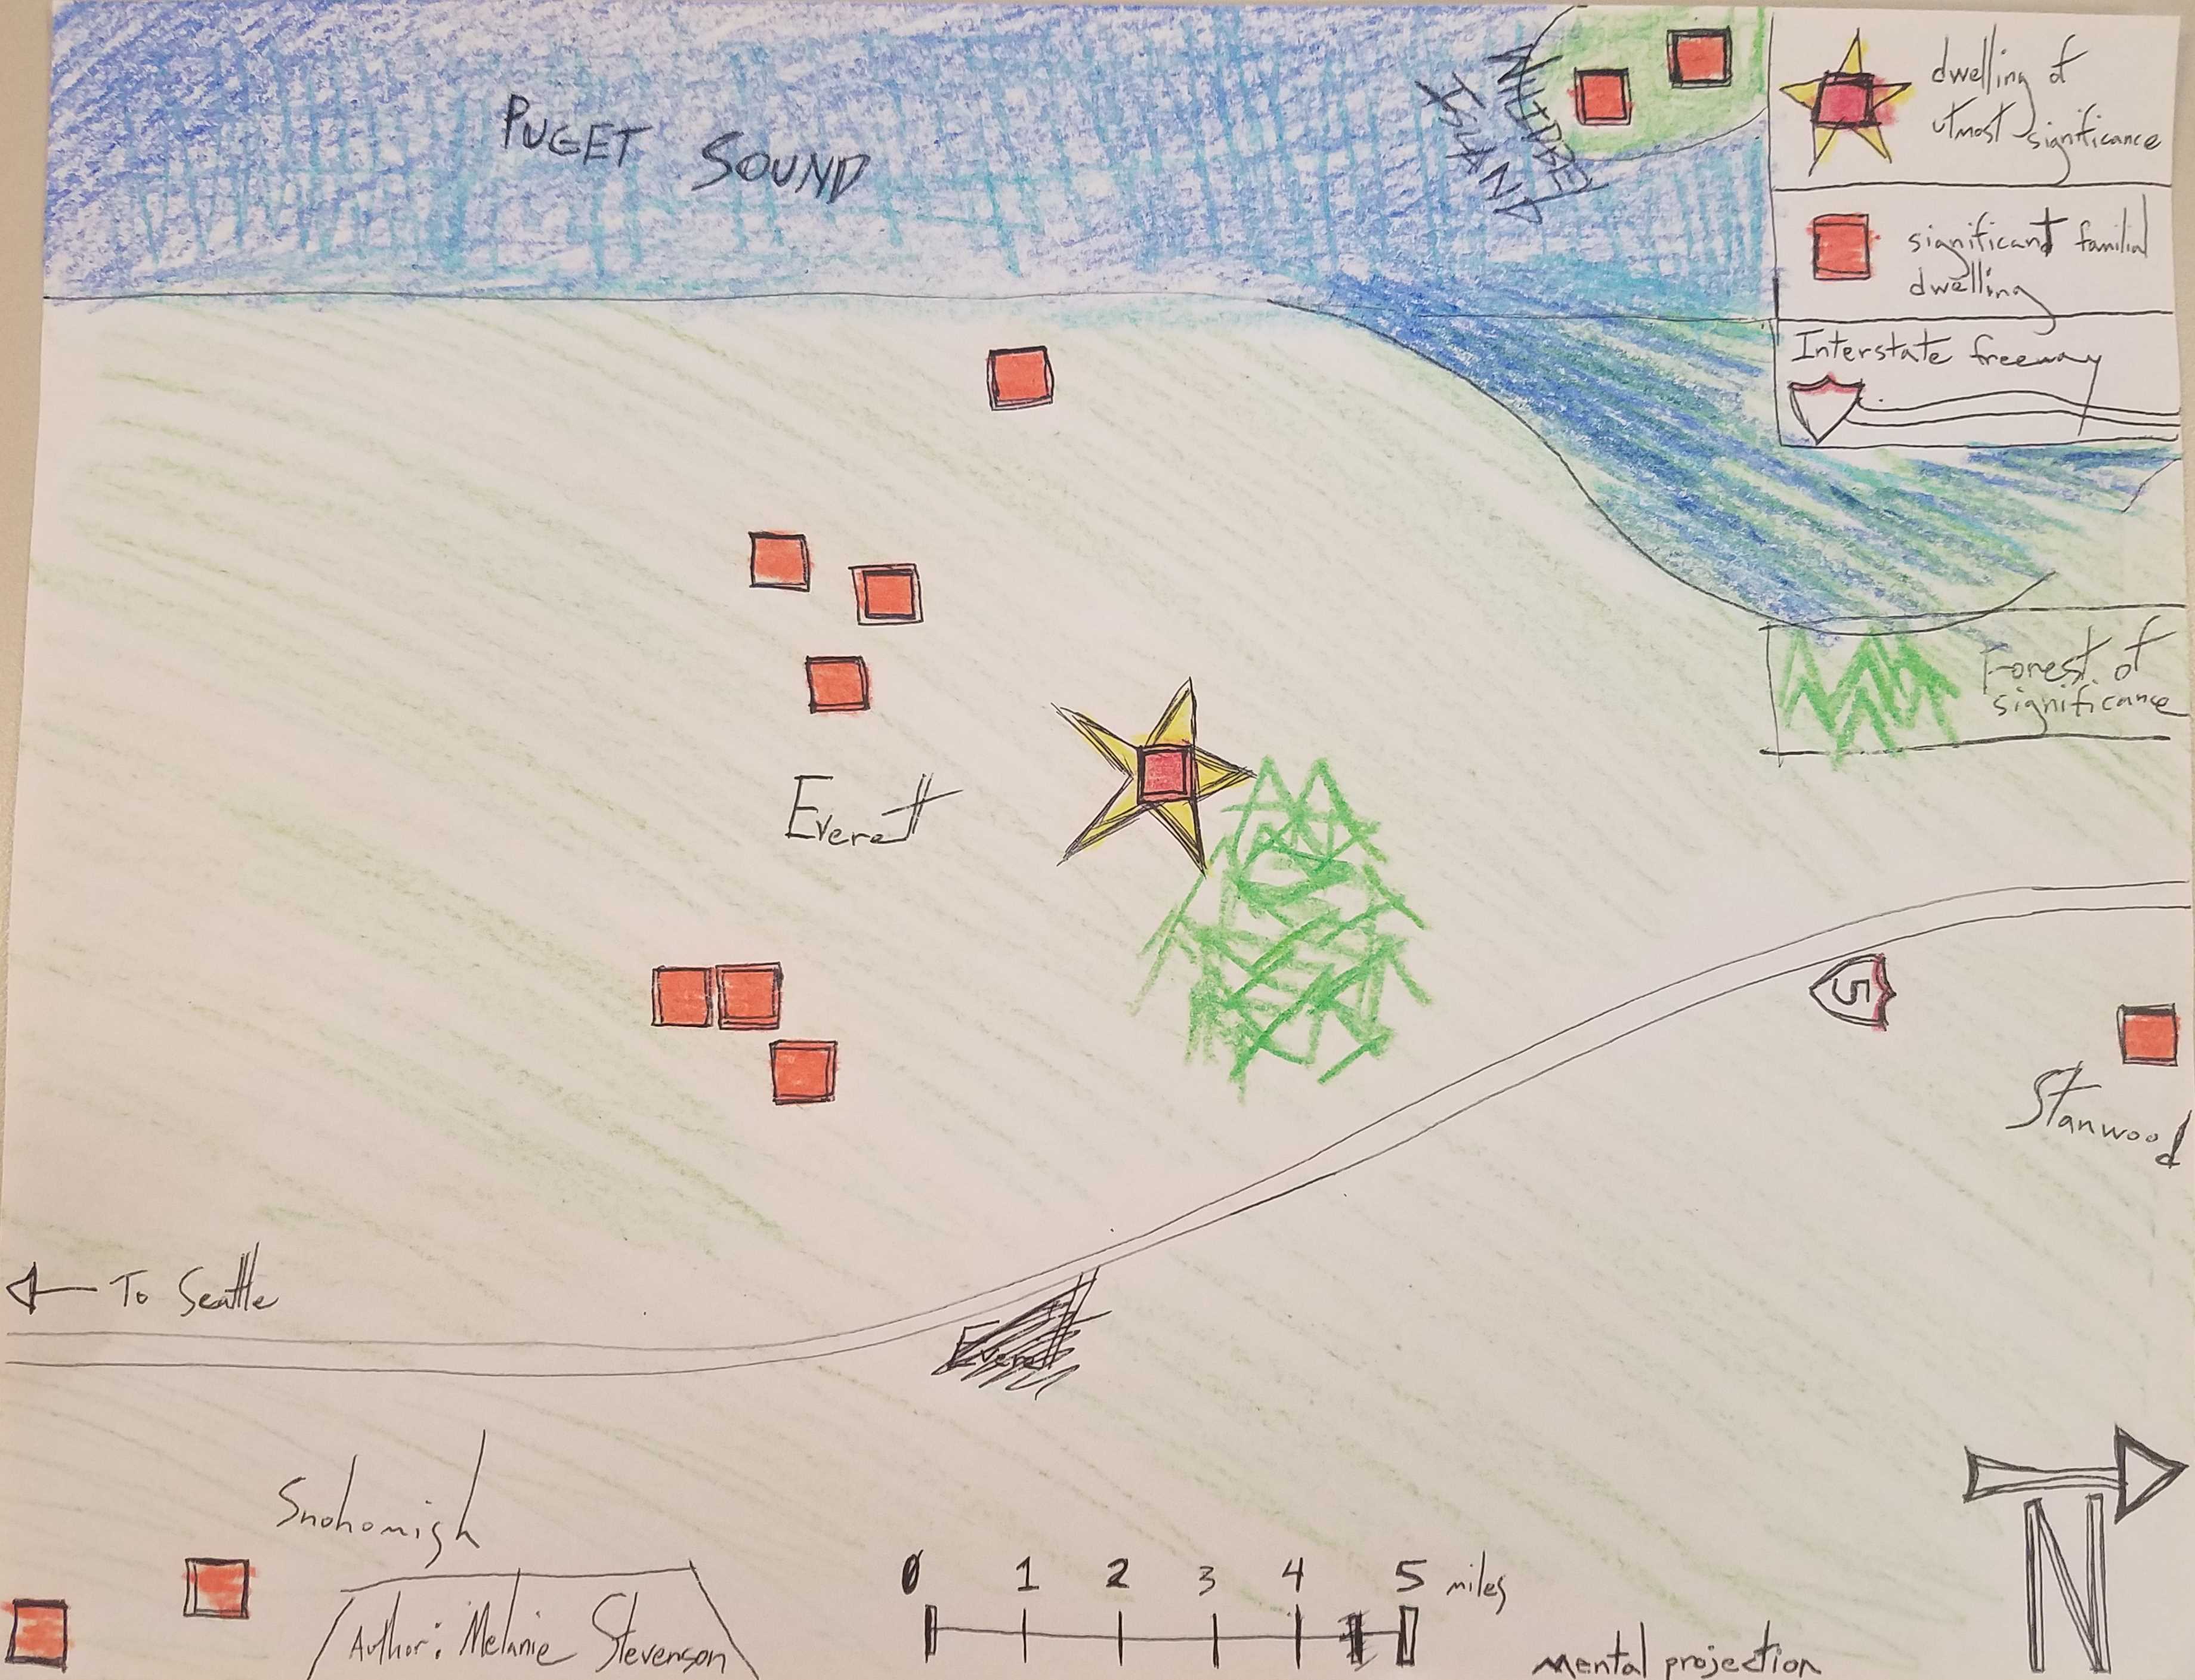 PUGET SOUND
WHIDBEY
ISLAND
dwelling of
utmost significance
significant familial
dwelling
Interstate freeway
Forest of
significance
Everett
5
Stanwood
To Seattle
Everett
Snohomish
Author: Melanie Stevenson
0 1 2 3 4 5 miles
Mental projection
N